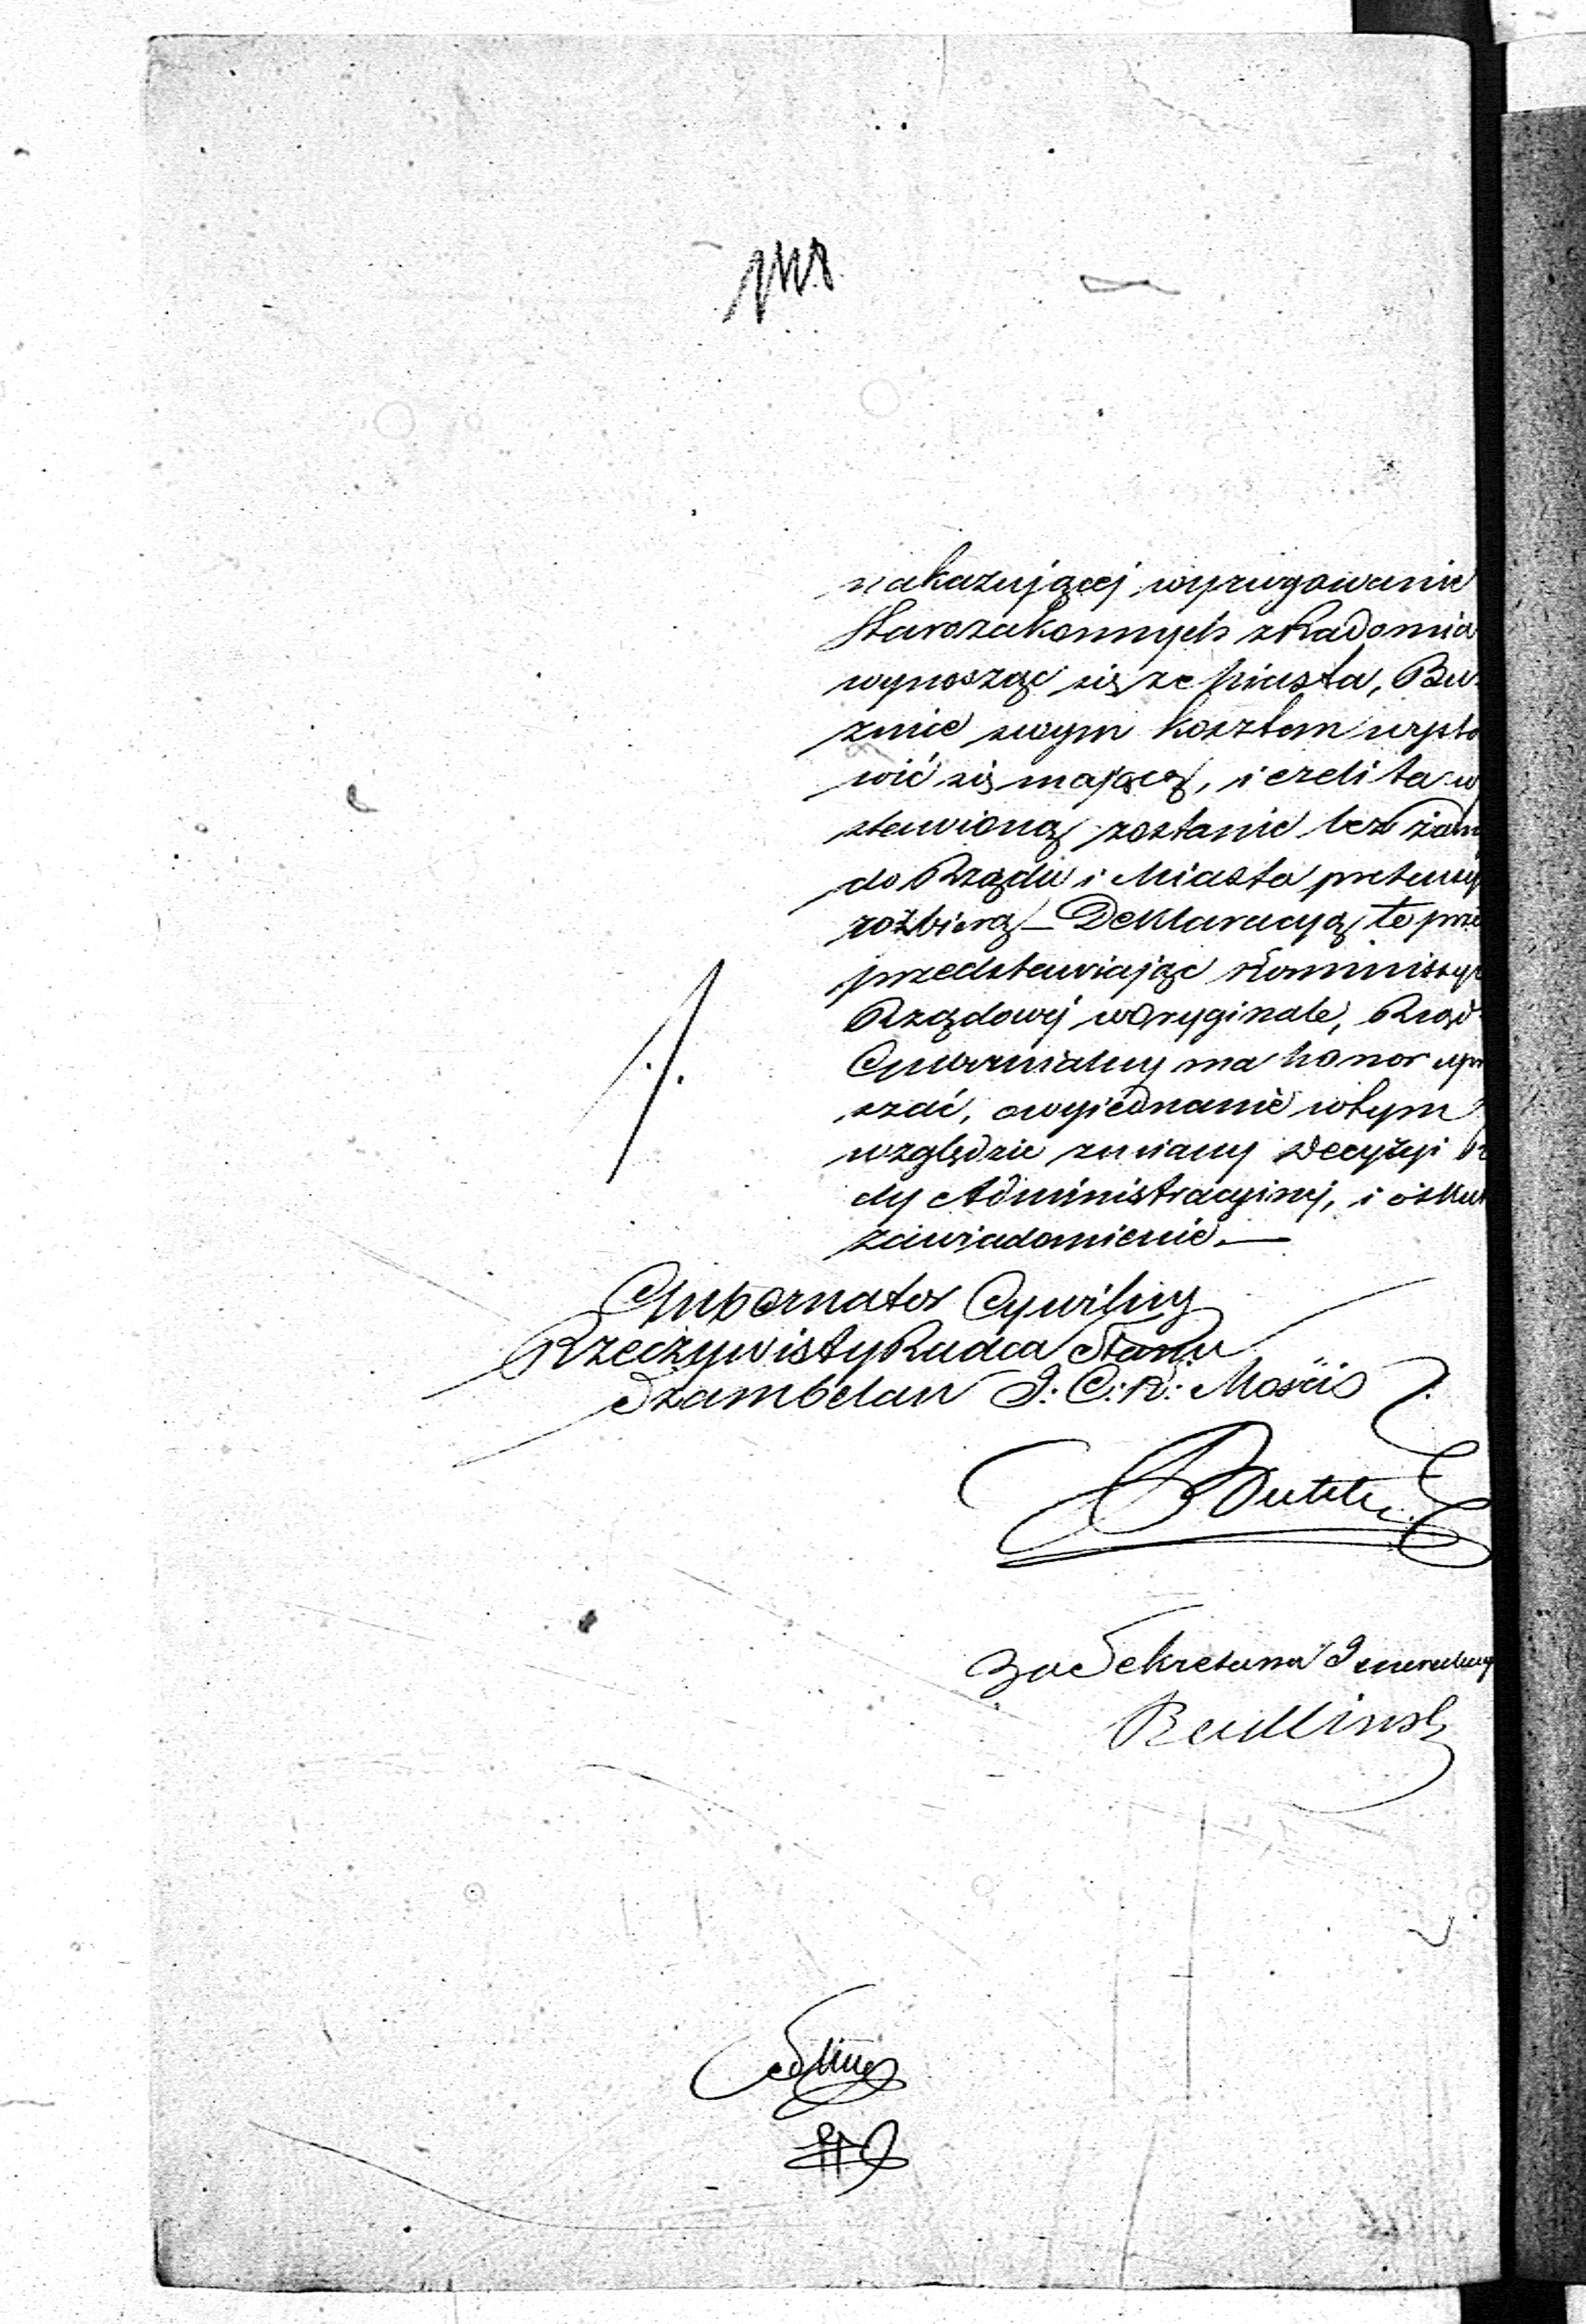 nakazującej wyrugowanie
Starozakonnych z Radomia
wynosząc się ze Miasta, Bu
żnicę swym kosztem wysta
wić się mającą, ieżeli ta w
stawioną zostanie bez żad
do Rządu i Miasta pretensyi
rozbiorą — Deklaracyą tę prze
przedstawiając Kommissyi
Rządowej w Oryginale, Rząd
Gubernialny ma honor upra
szać, o wyjednanie w tym
względzie zmiany Decyzyi Ra
dy Administracyjnej, i o skut
zawiadomienie. —
Gubernator Cywilny
Rzeczywisty Radca Stanu
Szambelan J: C: K: Mości
za Sekretarza Jeneralneg